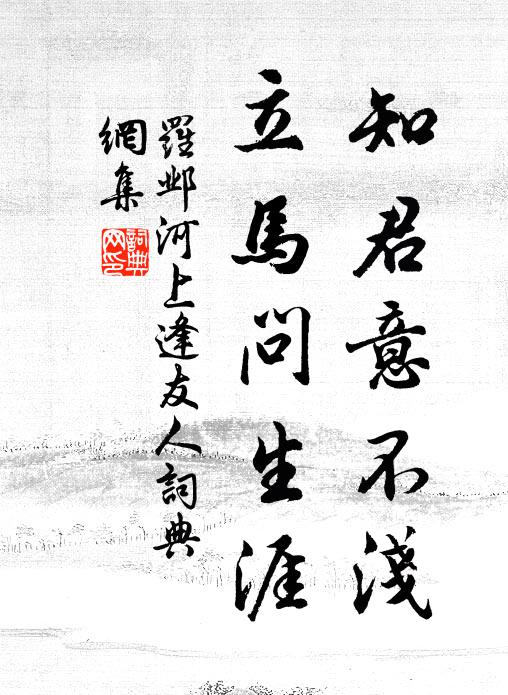 知君意不淺
立馬問生涯
羅鄴河上逢友人詞典
網集
詞典
网印